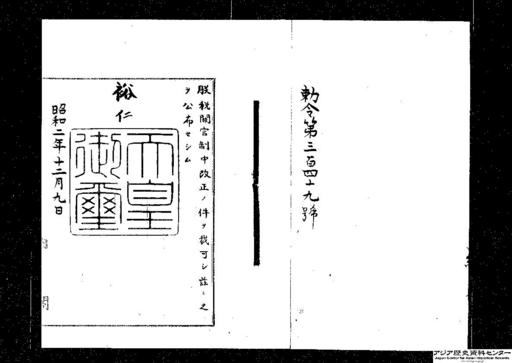 勅令第三百四十九號
朕税関官制中改正ノ件ヲ裁可シ茲ニ之
ヲ公布セシム
裕仁
天皇
御璽
昭和二年十二月九日
アジア歴史資料センター
Japan Center for Asian Historical Records